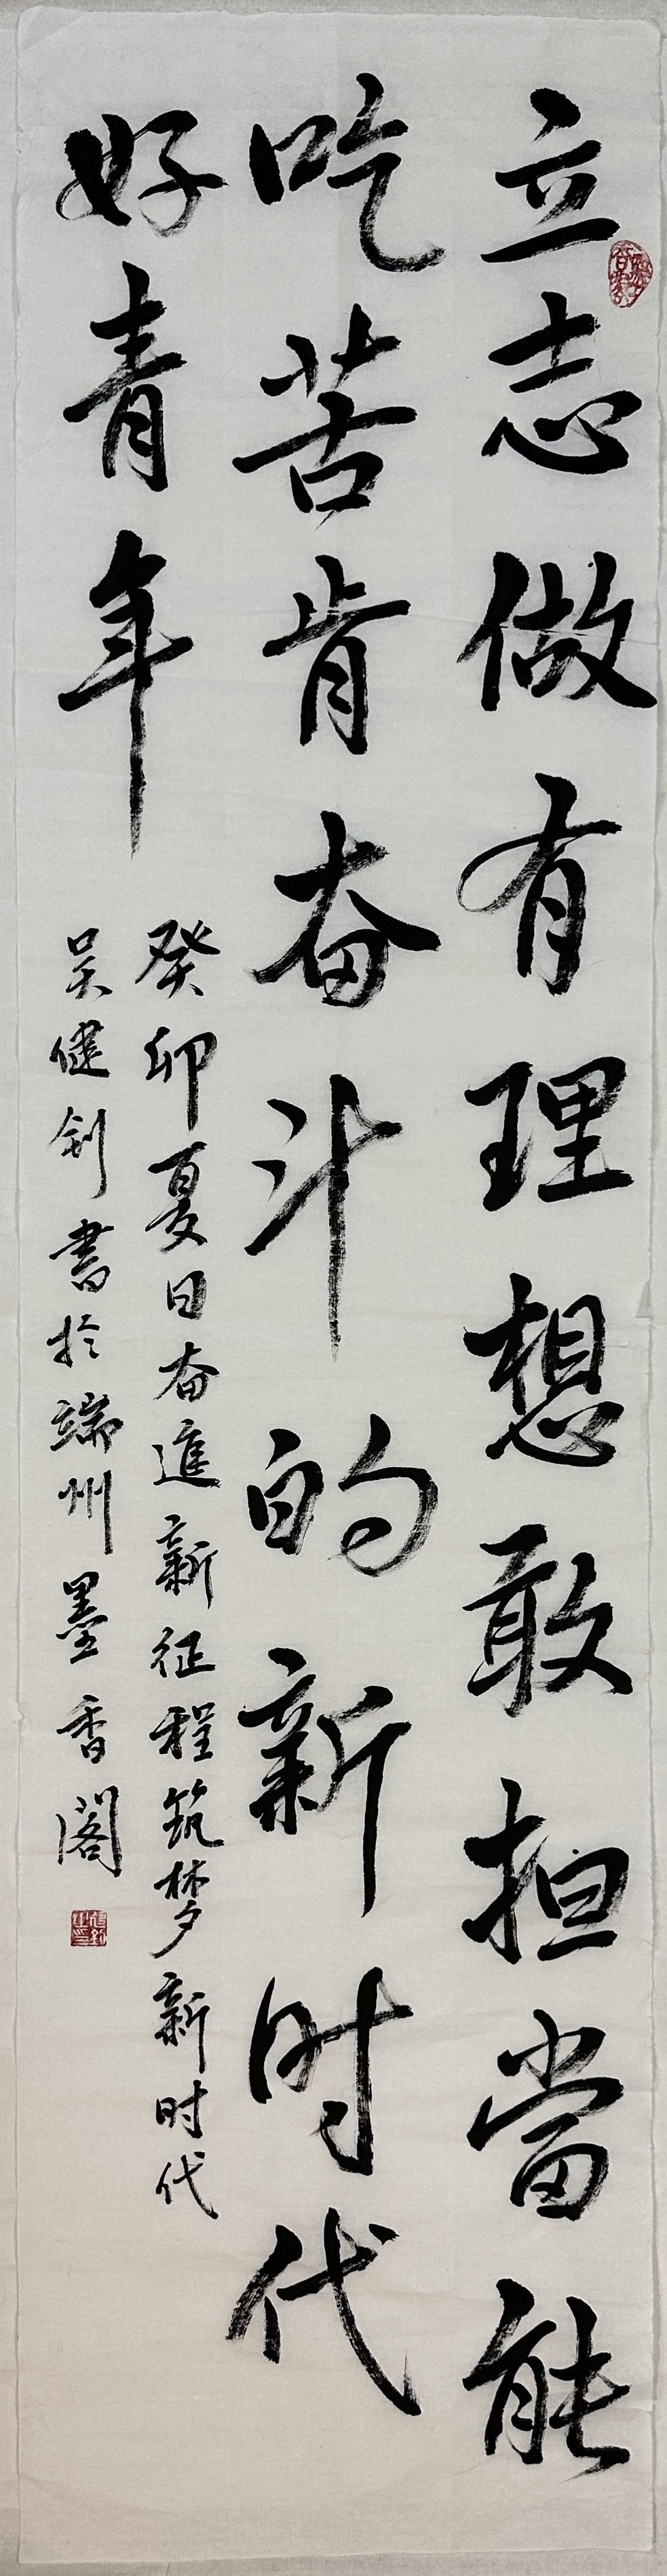 立志做有理想敢担當能
吃苦肯奋斗的新时代
好青年
癸卯夏日奋進新征程筑梦新时代
吴健剑書於端州墨香阁